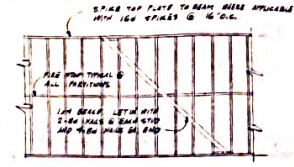 SPIKE TOP PLATE TO BEAM WHERE APPLICABLE
WITH 16d SPIKES @ 16" O.C.
FIRE STOP TYPICAL @
ALL PARTITIONS
1x4 BRACE LET IN WITH
2-8d NAILS @ EACH STUD
AND 4-8d NAILS EA. END